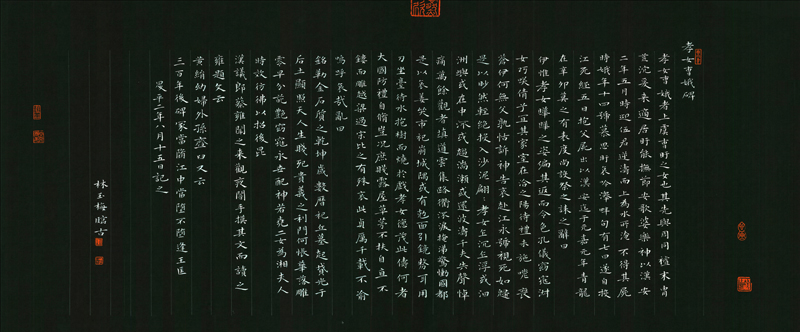 孝女曹娥碑
孝女曹娥者上虞曹盱之女也其先與周同祖末胄
荒沈爰來適居盱能撫節安歌婆樂神以漢安
二年五月時迎伍君逆濤而上為水所淹不得其屍
時娥年十四號慕思盱哀吟澤畔旬有七日遂自投
江死經五日抱父屍出以漢安迄于元嘉元年青龍
在辛卯莫之有表度尚設祭之誄之辭曰
伊惟孝女曄曄之姿偏其返而令色孔儀窈窕淑
女巧笑倩兮宜其家室在洽之陽待禮未施嗟喪
蒼伊何無父孰怙訴神告哀赴江永號視死如歸
是以眇然輕絕投入沙泥翩翩孝女乍沉乍浮或泊
洲嶼或在中流或趨湍瀨或還波濤千夫失聲悼
痛萬餘觀者填道雲集路衢流淚掩涕驚慟國都
是以哀姜哭市杞崩城隅或有剋面引鏡剺耳用
刀坐臺待水抱樹而燒於戲孝女德茂此儔何者
大國防禮自脩豈況庶賤露屋草茅不扶自直不
鏤而雕越梁過宋比之有殊哀此貞厲千載不渝
嗚呼哀哉亂曰
銘勒金石質之乾坤歲數曆祀丘墓起墳光于
后土顯照夫人生賤死貴義之利門何悵華落雕
零早分葩艷窈窕永世配神若堯二女為湘夫人
時效彷彿以招後昆
漢議郎蔡雍聞之來觀夜闇手摸其文而讀之
雍題文云
黃絹幼婦外孫齏臼又云
三百年後碑冢當墮江中當墮不墮逢王叵
昇平二年八月十五日記之
林玉梅臨古